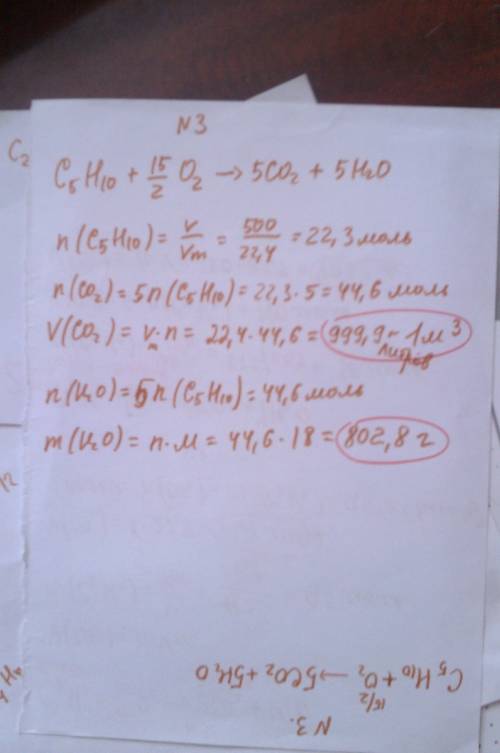 N3
C₅H₁₀ + 15/2 O₂ → 5CO₂ + 5H₂O
n(C₅H₁₀) = V/Vm = 500/22,4 = 22,3 моль
n(CO₂) = 5n(C₅H₁₀) = 22,3 · 5 = 44,6 моль
V(CO₂) = Vm · n = 22,4 · 44,6 = 999,9 ~ 1 м³
литров
n(H₂O) = 5n(C₅H₁₀) = 44,6 моль
m(H₂O) = n · M = 44,6 · 18 = 802,8 г
N3.
C₅H₁₀ + 15/2 O₂ → 5CO₂ + 5H₂O
C₂